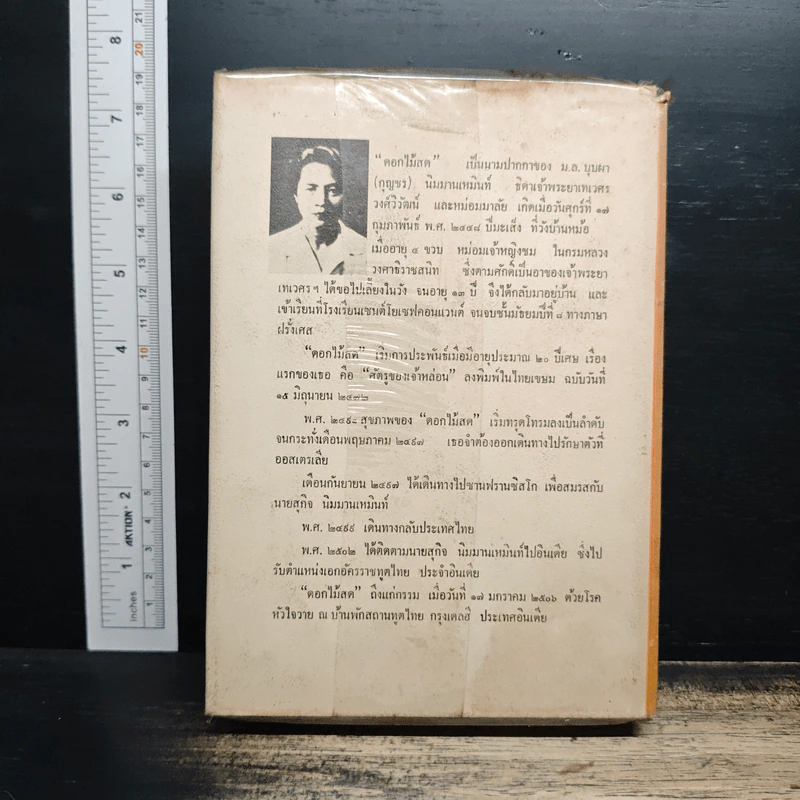 "ดอกไม้สด" เป็นนามปากกาของ ม.ล. บุบผา
(กุญชร) นิมมานเหมินท์ ธิดาเจ้าพระยาเทเวศร
วงศ์วิวัฒน์ และหม่อมมาลัย เกิดเมื่อวันศุกร์ที่ ๑๗
กุมภาพันธ์ พ.ศ. ๒๔๔๘ ปีมะเส็ง ที่วังบ้านหม้อ
เมื่ออายุ ๔ ขวบ หม่อมเจ้าหญิงชม ในกรมหลวง
วงศาธิราชสนิท ซึ่งตามศักดิ์เป็นอาของเจ้าพระยา
เทเวศร ฯ ได้ขอไปเลี้ยงในวัง จนอายุ ๑๓ ปี จึงได้กลับมาอยู่บ้าน และ
เข้าเรียนที่โรงเรียนเซนต์โยเซฟคอนแวนต์ จนจบชั้นมัธยมปีที่ ๘ ทางภาษา
ฝรั่งเศส
"ดอกไม้สด" เริ่มการประพันธ์เมื่อมีอายุประมาณ ๒๐ ปีเศษ เรื่อง
แรกของเธอ คือ "ศัตรูของเจ้าหล่อน" ลงพิมพ์ในไทยเขษม ฉบับวันที่
๑๕ มิถุนายน ๒๔๗๒
พ.ศ. ๒๔๙๘ สุขภาพของ "ดอกไม้สด" เริ่มทรุดโทรมลงเป็นลำดับ
จนกระทั่งเดือนพฤษภาคม ๒๔๙๗ เธอจำต้องออกเดินทางไปรักษาตัวที่
ออสเตรเลีย
เดือนกันยายน ๒๔๙๗ ได้เดินทางไปซานฟรานซิสโก เพื่อสมรสกับ
นายสุกิจ นิมมานเหมินท์
พ.ศ. ๒๔๙๙ เดินทางกลับประเทศไทย
พ.ศ. ๒๕๐๒ ได้ติดตามนายสุกิจ นิมมานเหมินท์ไปอินเดีย ซึ่งไป
รับตำแหน่งเอกอัครราชทูตไทย ประจำอินเดีย
"ดอกไม้สด" ถึงแก่กรรม เมื่อวันที่ ๑๗ มกราคม ๒๕๐๖ ด้วยโรค
หัวใจวาย ณ บ้านพักสถานทูตไทย กรุงเดลฮี ประเทศอินเดีย
8
7
6
5
4
3
2
1
inches
AKTION
21
20
19
18
17
16
15
14
13
12
11
10
9
8
7
6
5
4
3
2
1